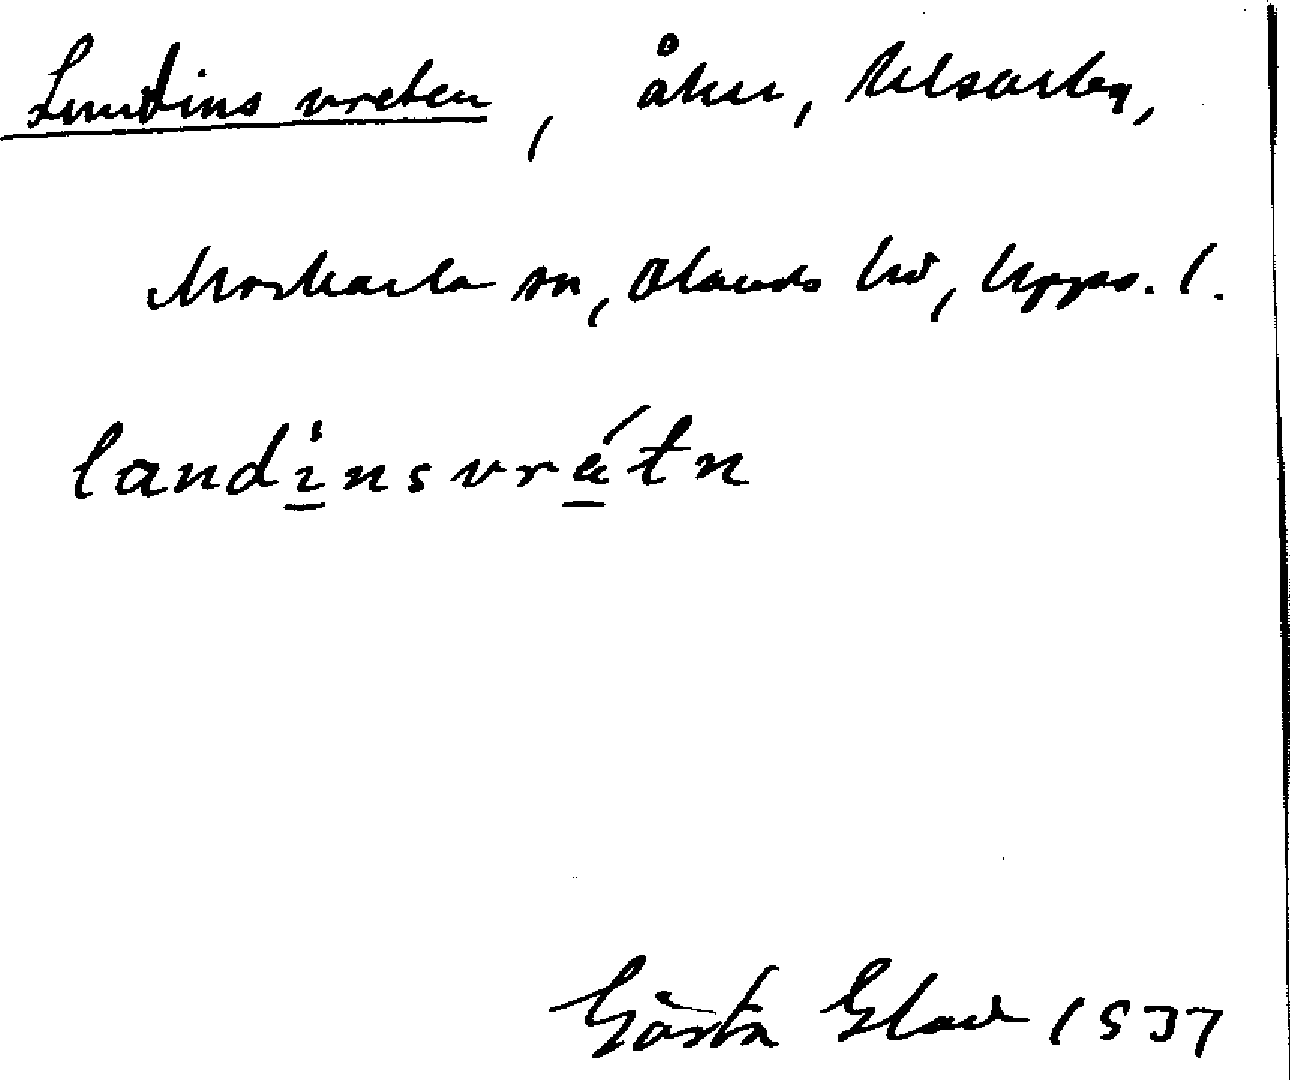 Lundins vreten, åker, Ulsarby,
Morkarla sn, Olands hd, Upps. l.
landinsvrétn
Gösta 1937